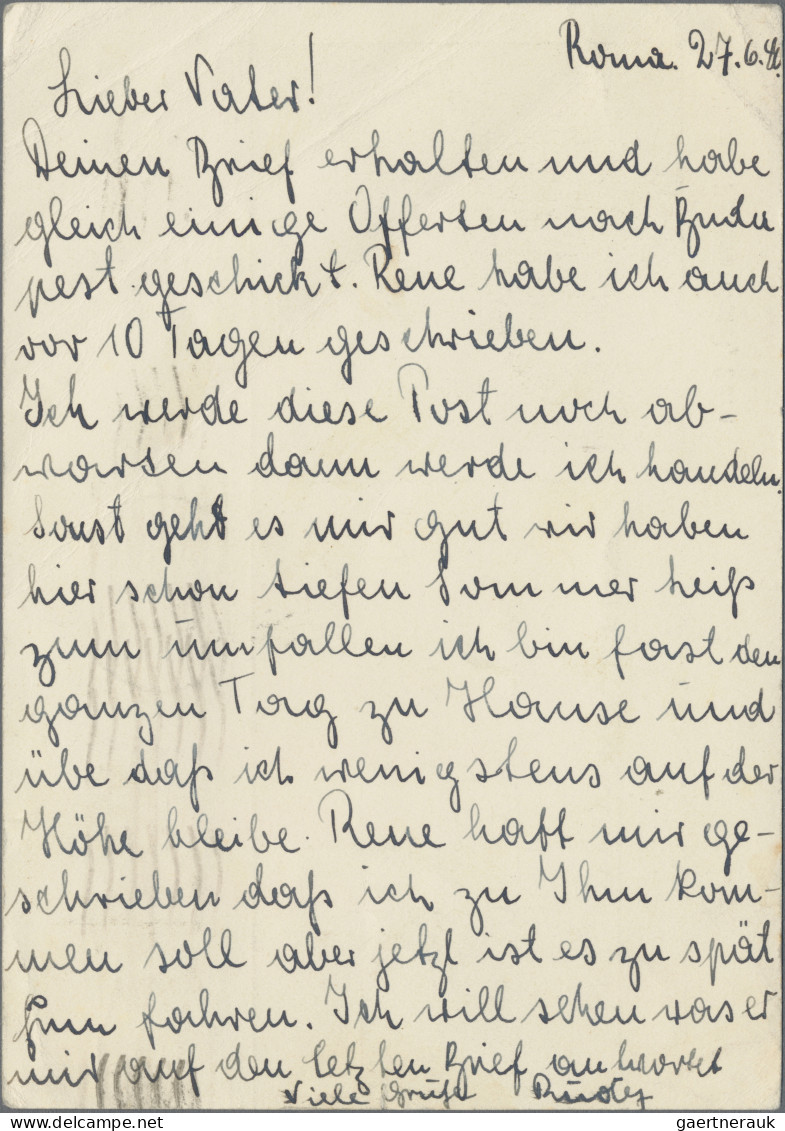 Roma. 27.6.
Lieber Vater!
Deinen Brief erhalten und habe
gleich einige Offerten nach Buda
pest geschickt. Rene habe ich auch
vor 10 Tagen geschrieben.
Ich werde diese Post noch ab-
warten dann werde ich handeln.
Sonst geht es mir gut wir haben
hier schon tiefen Sommer heiß
zum umfallen ich bin fast den
ganzen Tag zu Hause und
übe daß ich wenigstens auf der
Höhe bleibe. Rene hatt mir ge-
schrieben daß ich zu Ihm kom-
men soll aber jetzt ist es zu spät
fahren. Ich will sehen was er
mir auf den letzten Brief antwortet
Viele Grüße
gaertnerauk